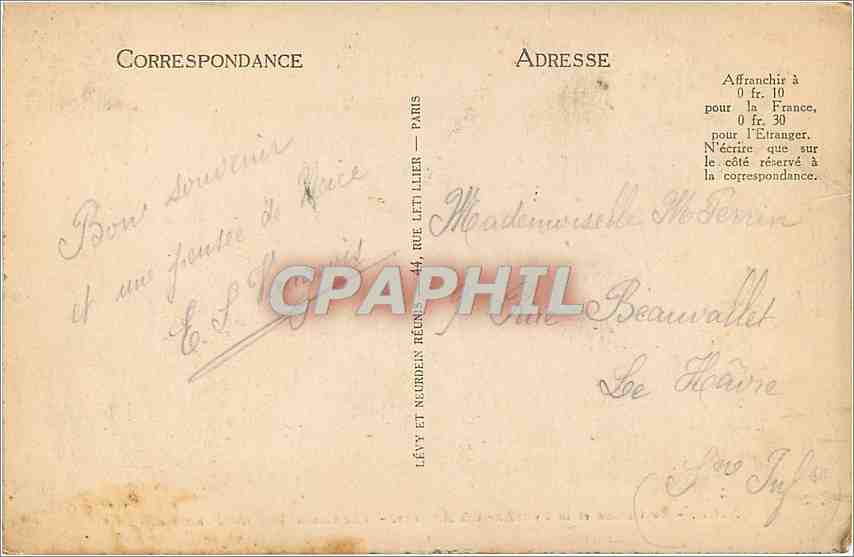 CORRESPONDANCE
ADRESSE
Affranchir à
0 fr. 10
pour la France,
0 fr. 30
pour l'Etranger.
N'écrire que sur
le côté réservé à
la correspondance.
Bon souvenir
et une pensée de Nice
E. S.
LÉVY ET NEURDEIN RÉUNIS 44, RUE LETELLIER — PARIS
Mademoiselle M Perrin
Rue Beauvallet
Le Hâvre
(Sne Infre
CPAPHIL